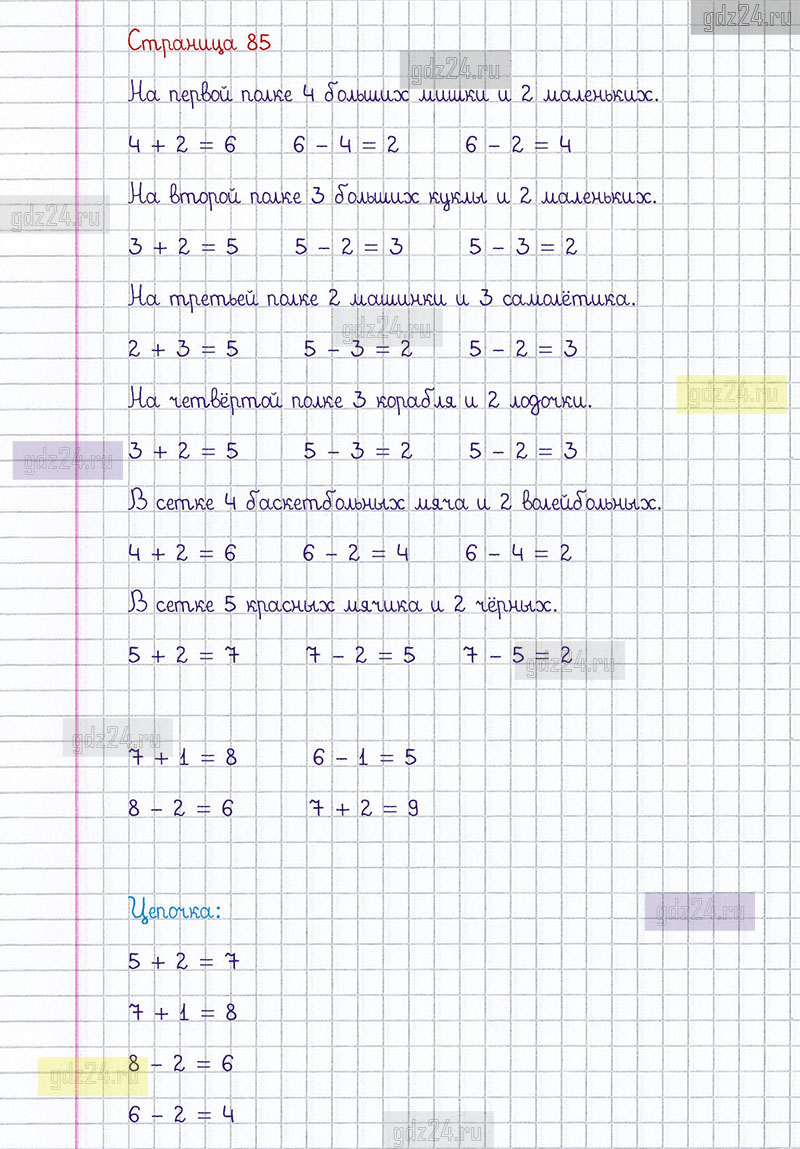 gdz24.ru
Страница 85
gdz24.ru
На первой полке 4 больших мишки и 2 маленьких.
4 + 2 = 6 6 - 4 = 2 6 - 2 = 4
На второй полке 3 больших куклы и 2 маленьких.
gdz24.ru
3 + 2 = 5 5 - 2 = 3 5 - 3 = 2
На третьей полке 2 машинки и 3 самолётика.
gdz24.ru
2 + 3 = 5 5 - 3 = 2 5 - 2 = 3
gdz24.ru
На четвёртой полке 3 корабля и 2 лодочки.
gdz24.ru
3 + 2 = 5 5 - 3 = 2 5 - 2 = 3
В сетке 4 баскетбольных мяча и 2 волейбольных.
4 + 2 = 6 6 - 2 = 4 6 - 4 = 2
В сетке 5 красных мячика и 2 чёрных.
5 + 2 = 7 7 - 2 = 5 7 - 5 = 2
gdz24.ru
gdz24.ru
7 + 1 = 8 6 - 1 = 5
8 - 2 = 6 7 + 2 = 9
Цепочка:
gdz24.ru
5 + 2 = 7
7 + 1 = 8
8 - 2 = 6
gdz24.ru
6 - 2 = 4
gdz24.ru